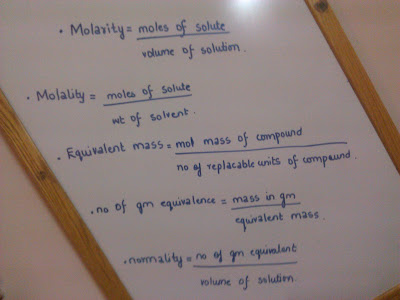 • Molarity = moles of solute
volume of solution.
• Molality = moles of solute
wt of solvent.
• Equivalent mass = mol mass of compound
no of replacable units of compound.
• no of gm equivalence = mass in gm
equivalent mass.
• normality = no of gm equivalent
volume of solution.